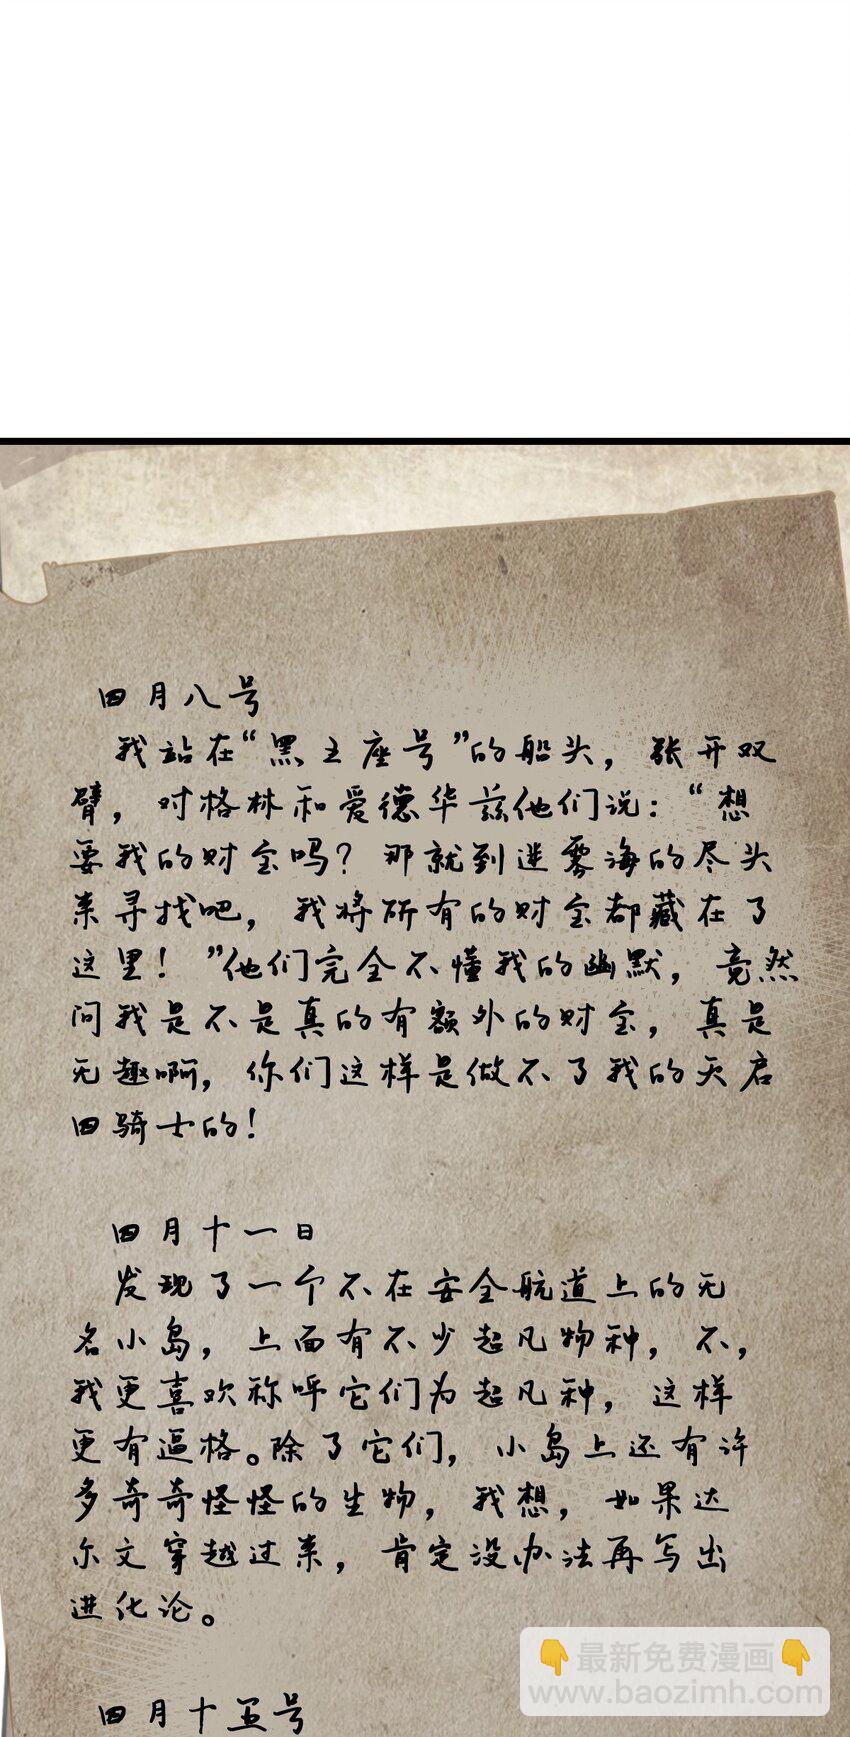 四月八号
我站在“黑王座号”的船头，张开双
臂，对格林和爱德华兹他们说：“想
要我的财宝吗？那就到迷雾海的尽头
来寻找吧，我将所有的财宝都藏在了
这里！”他们完全不懂我的幽默，竟然
问我是不是真的有额外的财宝，真是
无趣啊，你们这样是做不了我的天启
四骑士的！
四月十一日
发现了一个不在安全航道上的无
名小岛，上面有不少超凡物种，不，
我更喜欢称呼它们为超凡种，这样
更有逼格。除了它们，小岛上还有许
多奇奇怪怪的生物，我想，如果达
尔文穿越过来，肯定没办法再写出
进化论。
四月十五号
👇最新免费漫画👇
www.baozimh.com